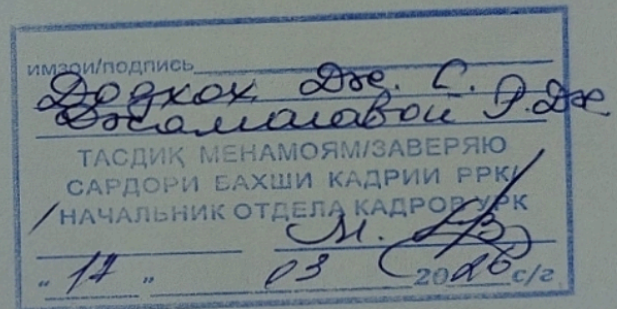 имзои/подпись
Додхох Дж. С.
Джамалавой Р. Дж
ТАСДИҚ МЕНАМОЯМ/ЗАВЕРЯЮ
САРДОРИ БАХШИ КАДРИИ РРК/
/НАЧАЛЬНИК ОТДЕЛА КАДРОВ УРК
"17" 03 2026 с/г